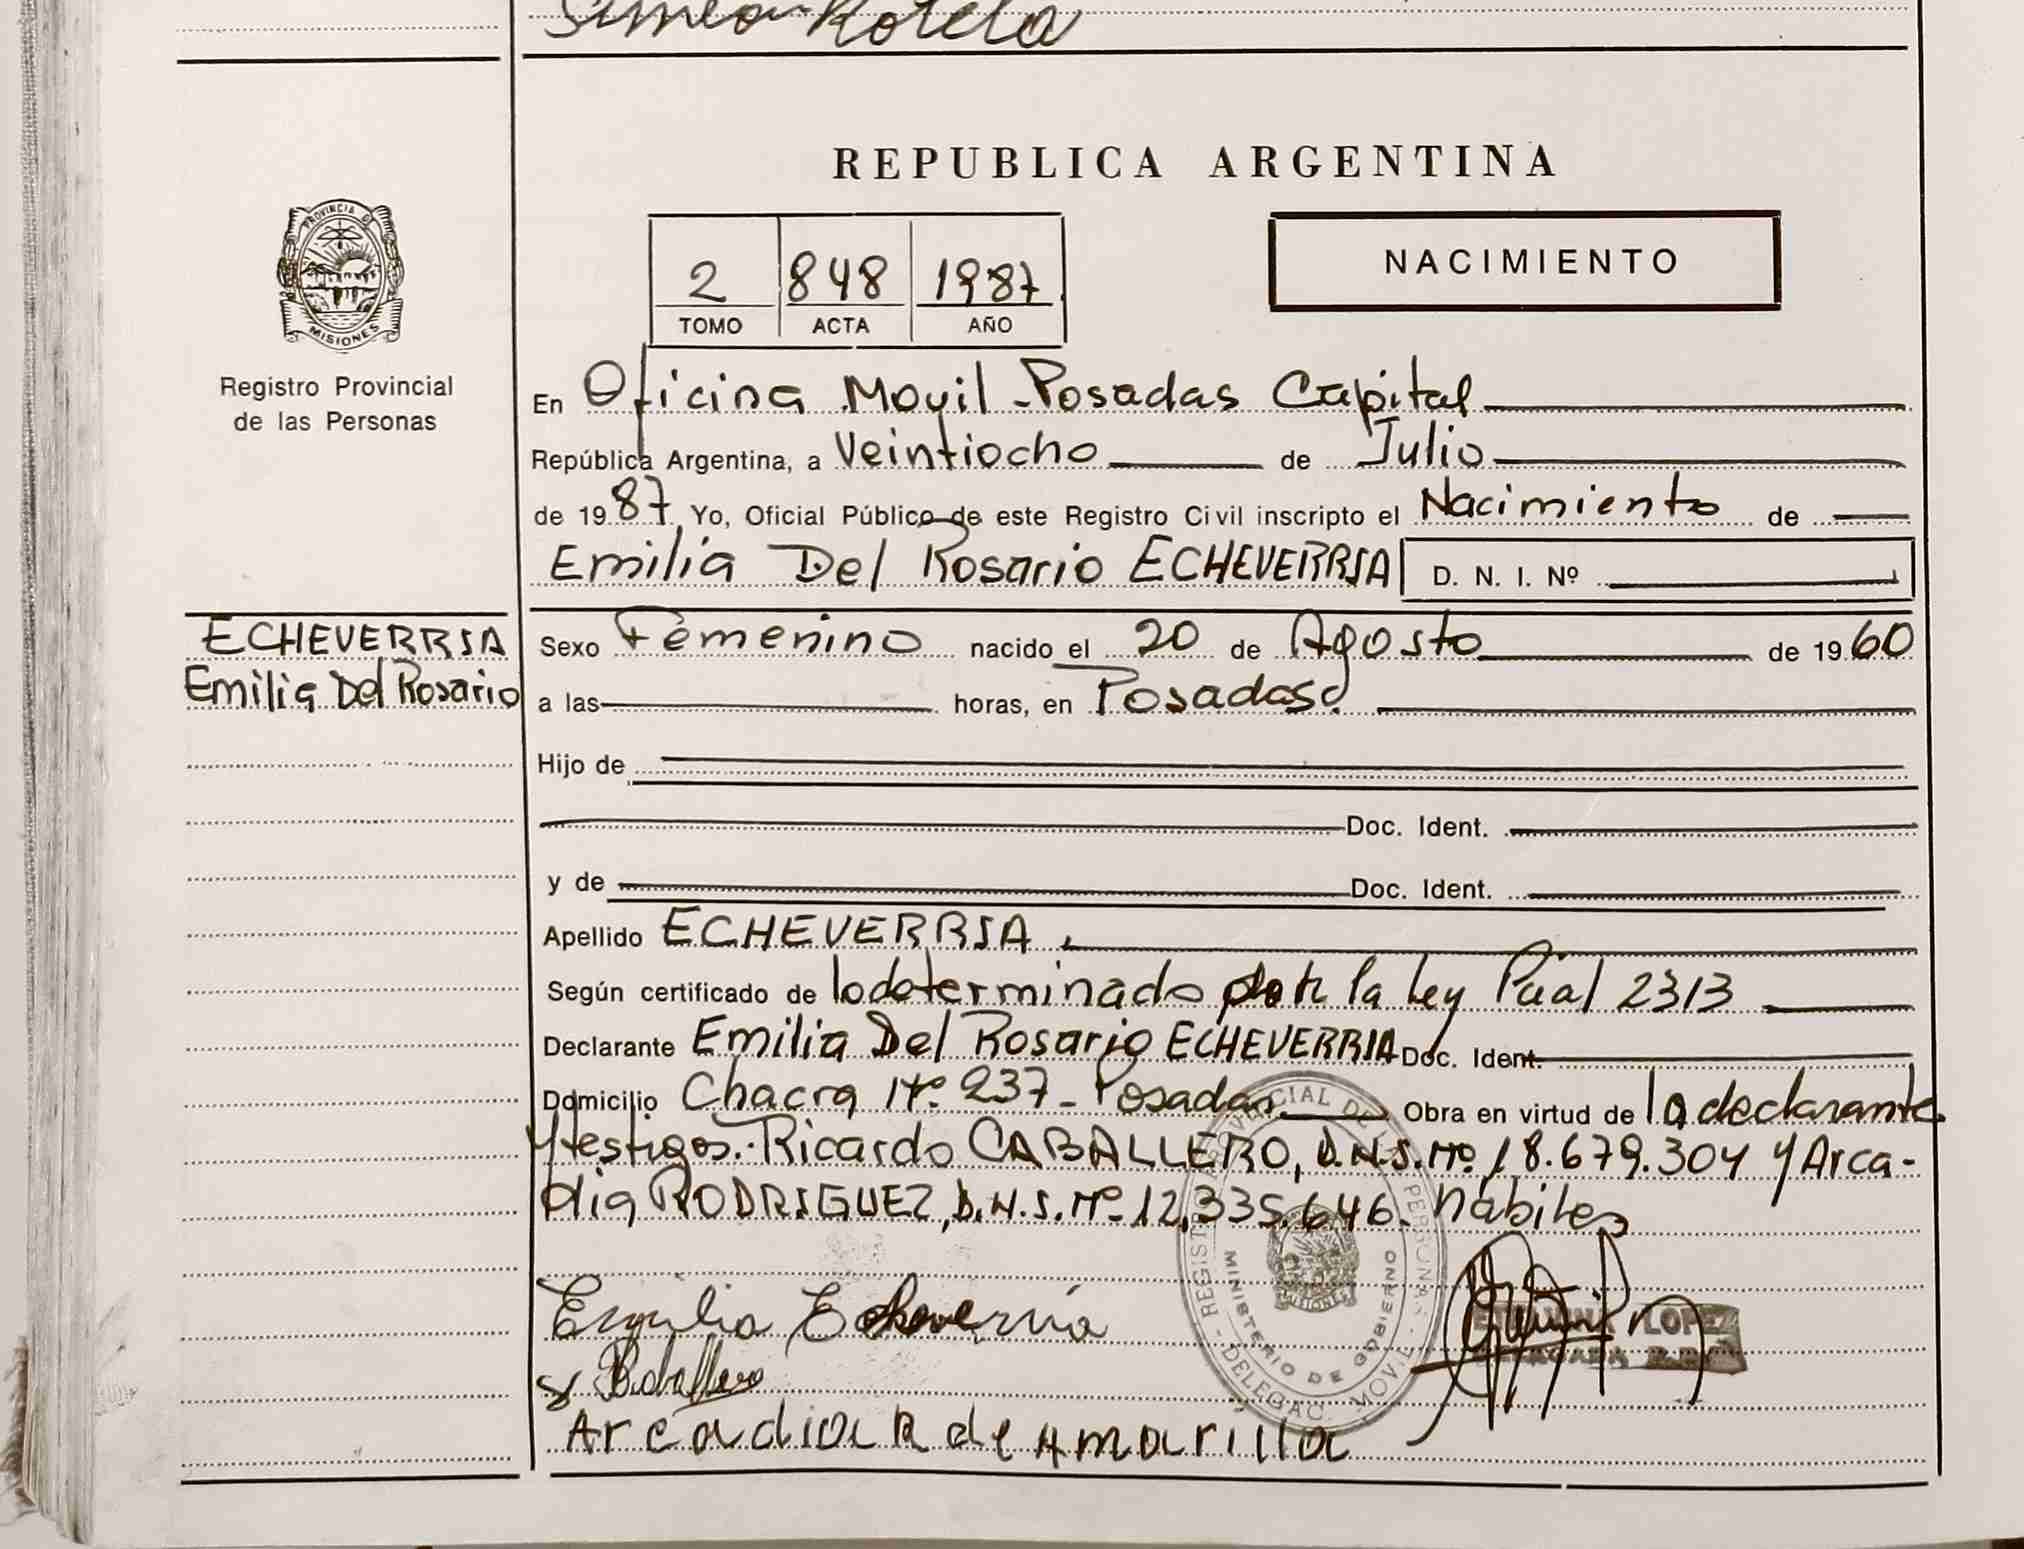 Simeon Rotela
REPUBLICA ARGENTINA
PROVINCIA D
MISIONES
Registro Provincial
de las Personas
2 848 1987
TOMO ACTA AÑO
NACIMIENTO
En Oficina Movil - Posadas Capital
República Argentina, a Veintiocho de Julio
de 1987 Yo, Oficial Público de este Registro Civil inscripto el Nacimiento de
Emilia Del Rosario ECHEVERRIA D. N. I. Nº
ECHEVERRIA
Emilia Del Rosario
Sexo Femenino nacido el 20 de Agosto de 1960
a las horas, en Posadas.
Hijo de
Doc. Ident.
y de Doc. Ident.
Apellido ECHEVERRIA.
Según certificado de lo determinado por la Ley Pcial 2313
Declarante Emilia Del Rosario ECHEVERRIA Doc. Ident.
Domicilio Chacra Nº 237 - Posadas Obra en virtud de la declarante
y testigos. Ricardo CABALLERO, D.N.I. Nº 18.679.304 y Arca-
dia RODRIGUEZ, D.N.I. Nº 12.335.646. hábiles
Emilia Echeverría
Arcadia R de Amarilla
REGISTRO PROVINCIAL DE PERSONAS
MINISTERIO DE GOBIERNO
DELEGAC. MOVIL
MISIONES
LOPEZ